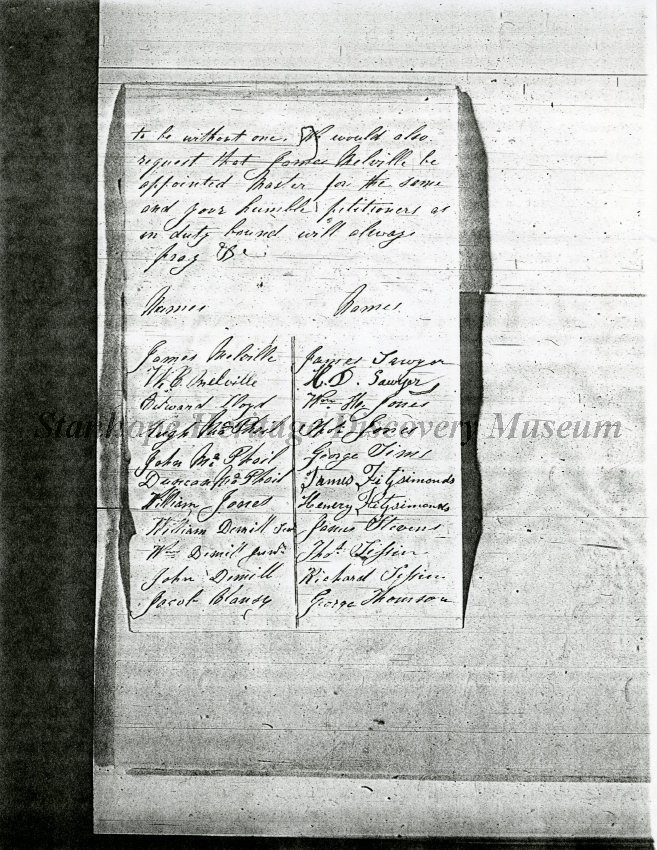 to be without one. We would also
request that James Melville be
appointed Master for the same
and your humble petitioners as
in duty bound will always
pray &c
Names
Names
James Melville
Wm Melville
Edward Lloyd
Hugh McPhail
John Mc Phail
Duncan Mc Phail
William Jones
William Demill Sen
Wm Demill Junr
John Demill
Jacob Blandy
James Sawyer
H. D. Sawyer
Wm Hy Jones
Jones
George Sims
James Fitzsimonds
Henery Fitzsimonds
James Stevens
Thos
Richard
George Thomson
Stanhope Heritage Discovery Museum